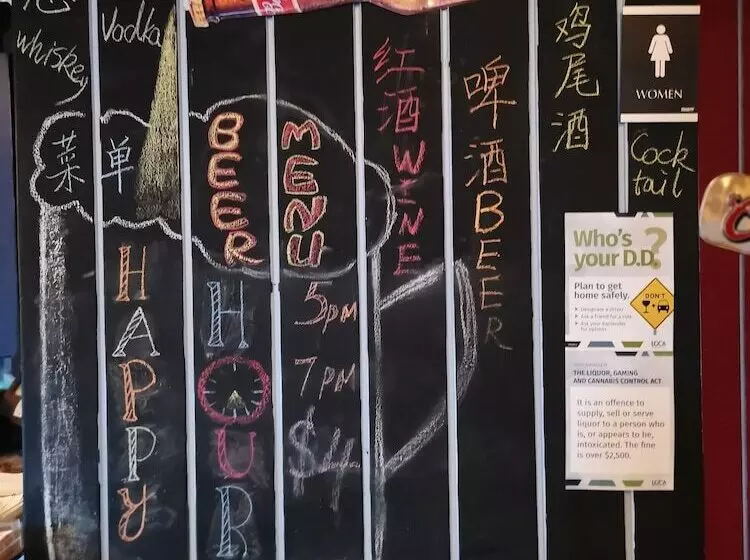 whiskey
Vodka
菜单
BEER
MENU
HAPPY
HOUR
5pm
7pm
$4
红酒WINE
啤酒BEER
鸡尾酒
Cock
tail
WOMEN
Who's
your D.D.?
Plan to get
home safely.
DON'T
THE LIQUOR, GAMING
AND CANNABIS CONTROL ACT
It is an offence to
supply, sell or serve
liquor to a person who
is, or appears to be,
intoxicated. The fine
is over $2,500.
LGCA